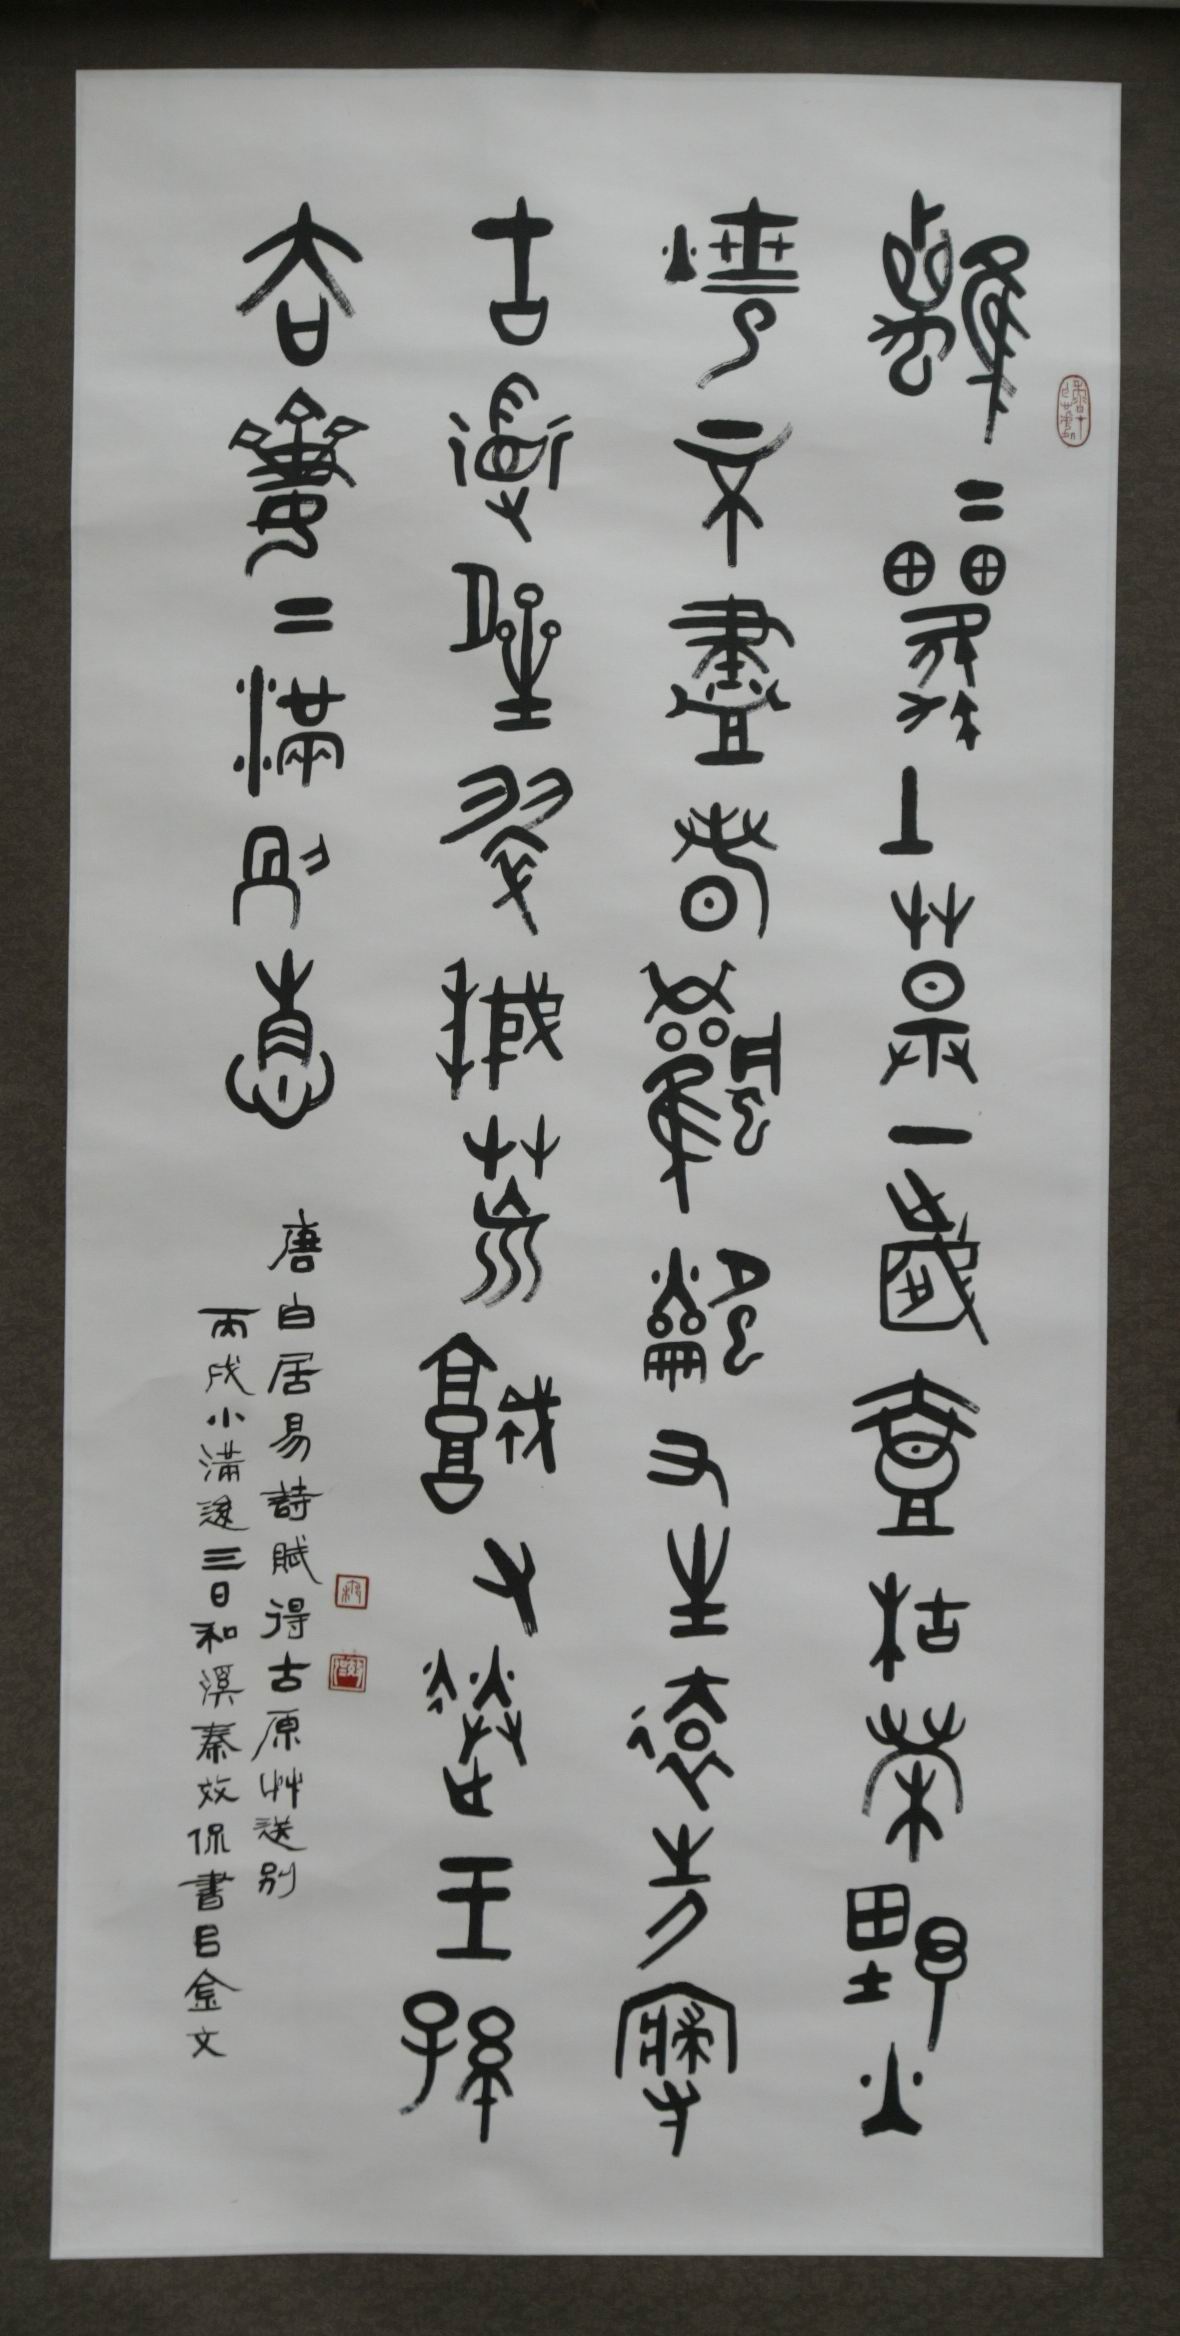 離〻原上草一歲壹枯榮野火
燒不盡春風吹又生遠芳寖
古道晴翠接荒城又送王孫
去萋〻滿別情
唐白居易詩賦得古原艸送別
丙戌小滿後三日和溪秦效侃書㠯金文